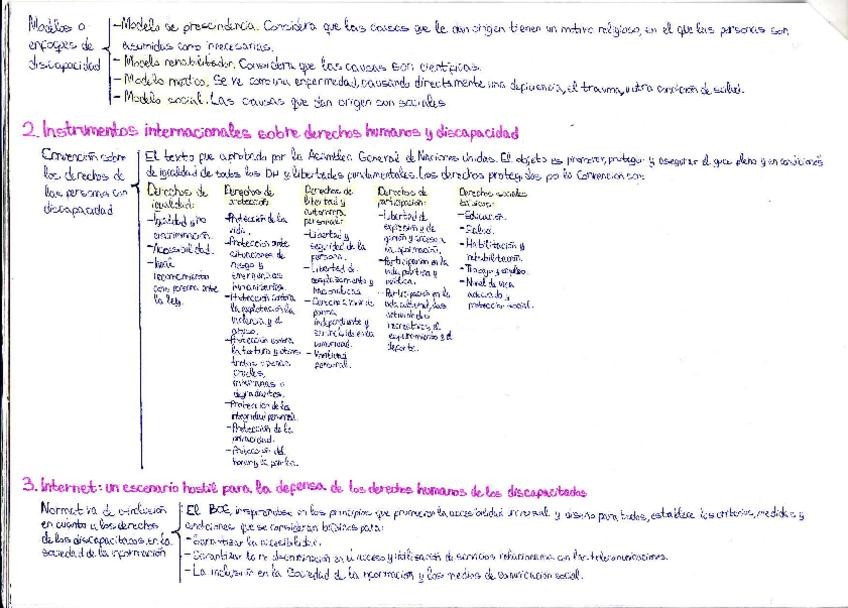 Modelos o enfoques de discapacidad
- Modelo de prescindencia. Considera que las causas que le dan origen tienen un motivo religioso, en el que las personas son
asumidas como innecesarias.
- Modelo rehabilitador. Considera que las causas son científicas.
- Modelo médico. Se ve como una enfermedad, causando directamente una deficiencia, el trauma, u otra condición de salud.
- Modelo social. Las causas que dan origen son sociales
2. Instrumentos internacionales sobre derechos humanos y discapacidad
Convención sobre
los derechos de
las persona con
discapacidad
El texto que aprobado por la Asamblea General de Naciones Unidas. El objeto es promover, proteger y asegurar el goce pleno y en condiciones
de igualdad de todos los DH y libertades fundamentales. Los derechos protegidos por la Convención son:
Derechos de
igualdad:
- Igualdad y no
discriminación.
- Accesibilidad.
- Igual
reconocimiento
como persona ante
la ley.
Derechos de
protección:
- Protección de la
vida.
- Protección ante
situaciones de
riesgo y
emergencias
humanitarias.
- Protección contra
la explotación, la
violencia y el
abuso.
- Protección contra
la tortura y otros
tratos o penas
crueles,
inhumanos o
degradantes.
- Protección de la
integridad personal.
- Protección de la
privacidad.
- Protección del
hogar y la familia.
Derechos de
libertad y
autonomía
personal:
- Libertad y
seguridad de la
persona.
- Libertad de
desplazamiento y
nacionalidad.
- Derecho a vivir de
forma
independiente y
ser incluido en la
comunidad.
- Movilidad
personal.
Derechos de
participación:
- Libertad de
expresión y de
opinión y acceso a
la información.
- Participación en la
vida política y
pública.
- Participación en la
vida cultural, las
actividades
recreativas, el
esparcimiento y el
deporte.
Derechos sociales
básicos:
- Educación.
- Salud.
- Habilitación y
rehabilitación.
- Trabajo y empleo.
- Nivel de vida
adecuado y
protección social.
3. Internet: un escenario hostil para la defensa de los derechos humanos de los discapacitados
Normativa de e-inclusión
en cuanto a los derechos
de los discapacitados en la
sociedad de la información
El BOE, inspirándose en los principios que promueven la accesibilidad universal y diseño para todos, establece los criterios, medidas y
condiciones que se consideran básicas para:
- Garantizar la accesibilidad.
- Garantizar la no discriminación en el acceso y utilización de servicios relacionados con las telecomunicaciones.
- La inclusión en la Sociedad de la información y los medios de comunicación social.